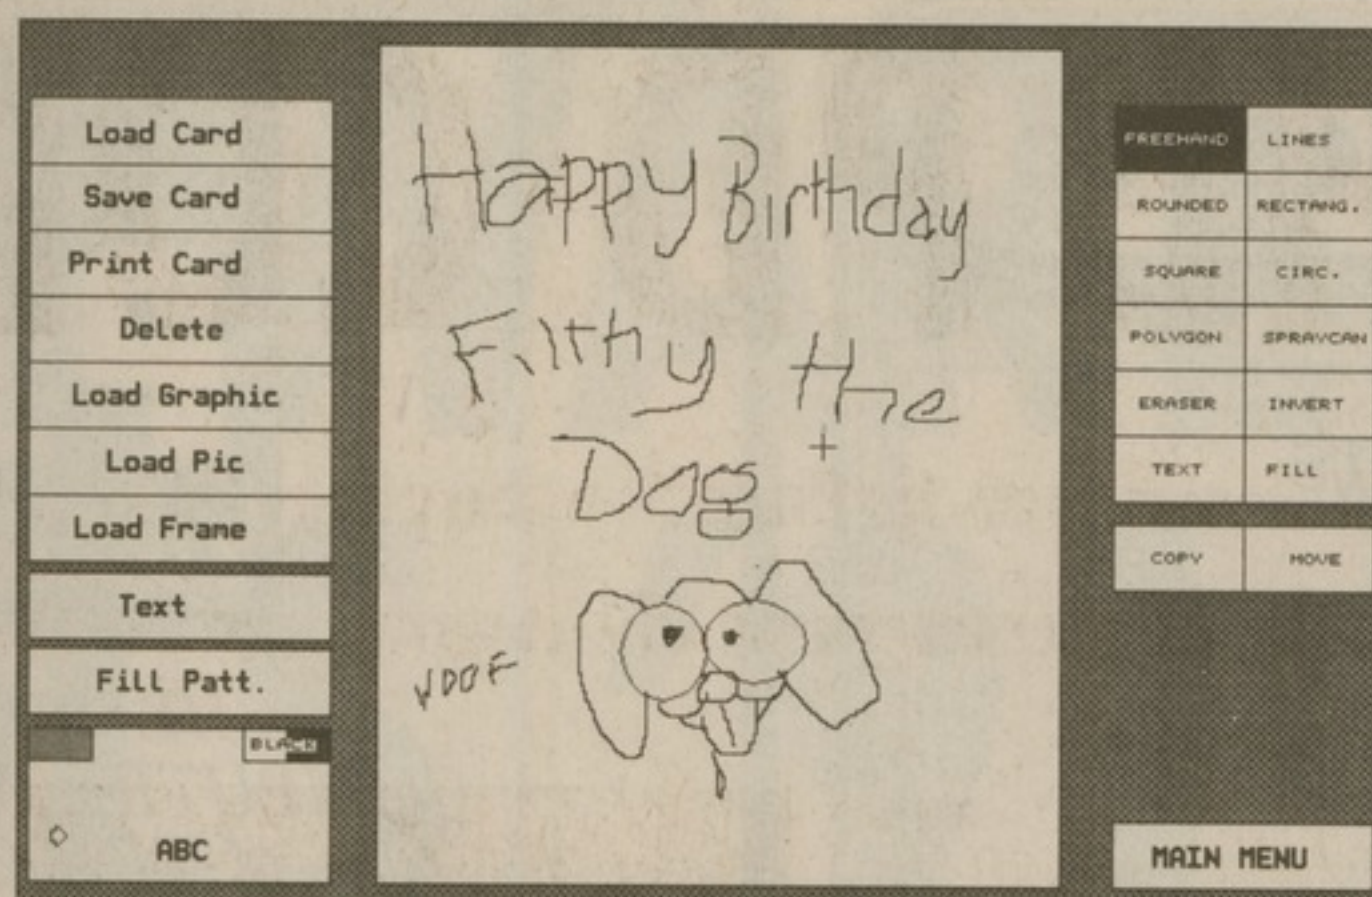 Load Card
Save Card
Print Card
Delete
Load Graphic
Load Pic
Load Frame
Text
Fill Patt.
BLACK
ABC
Happy Birthday
Filthy the
Dog
WOOF
FREEHAND LINES
ROUNDED RECTANG.
SQUARE CIRC.
POLYGON SPRAYCAN
ERASER INVERT
TEXT FILL
COPY MOVE
MAIN MENU